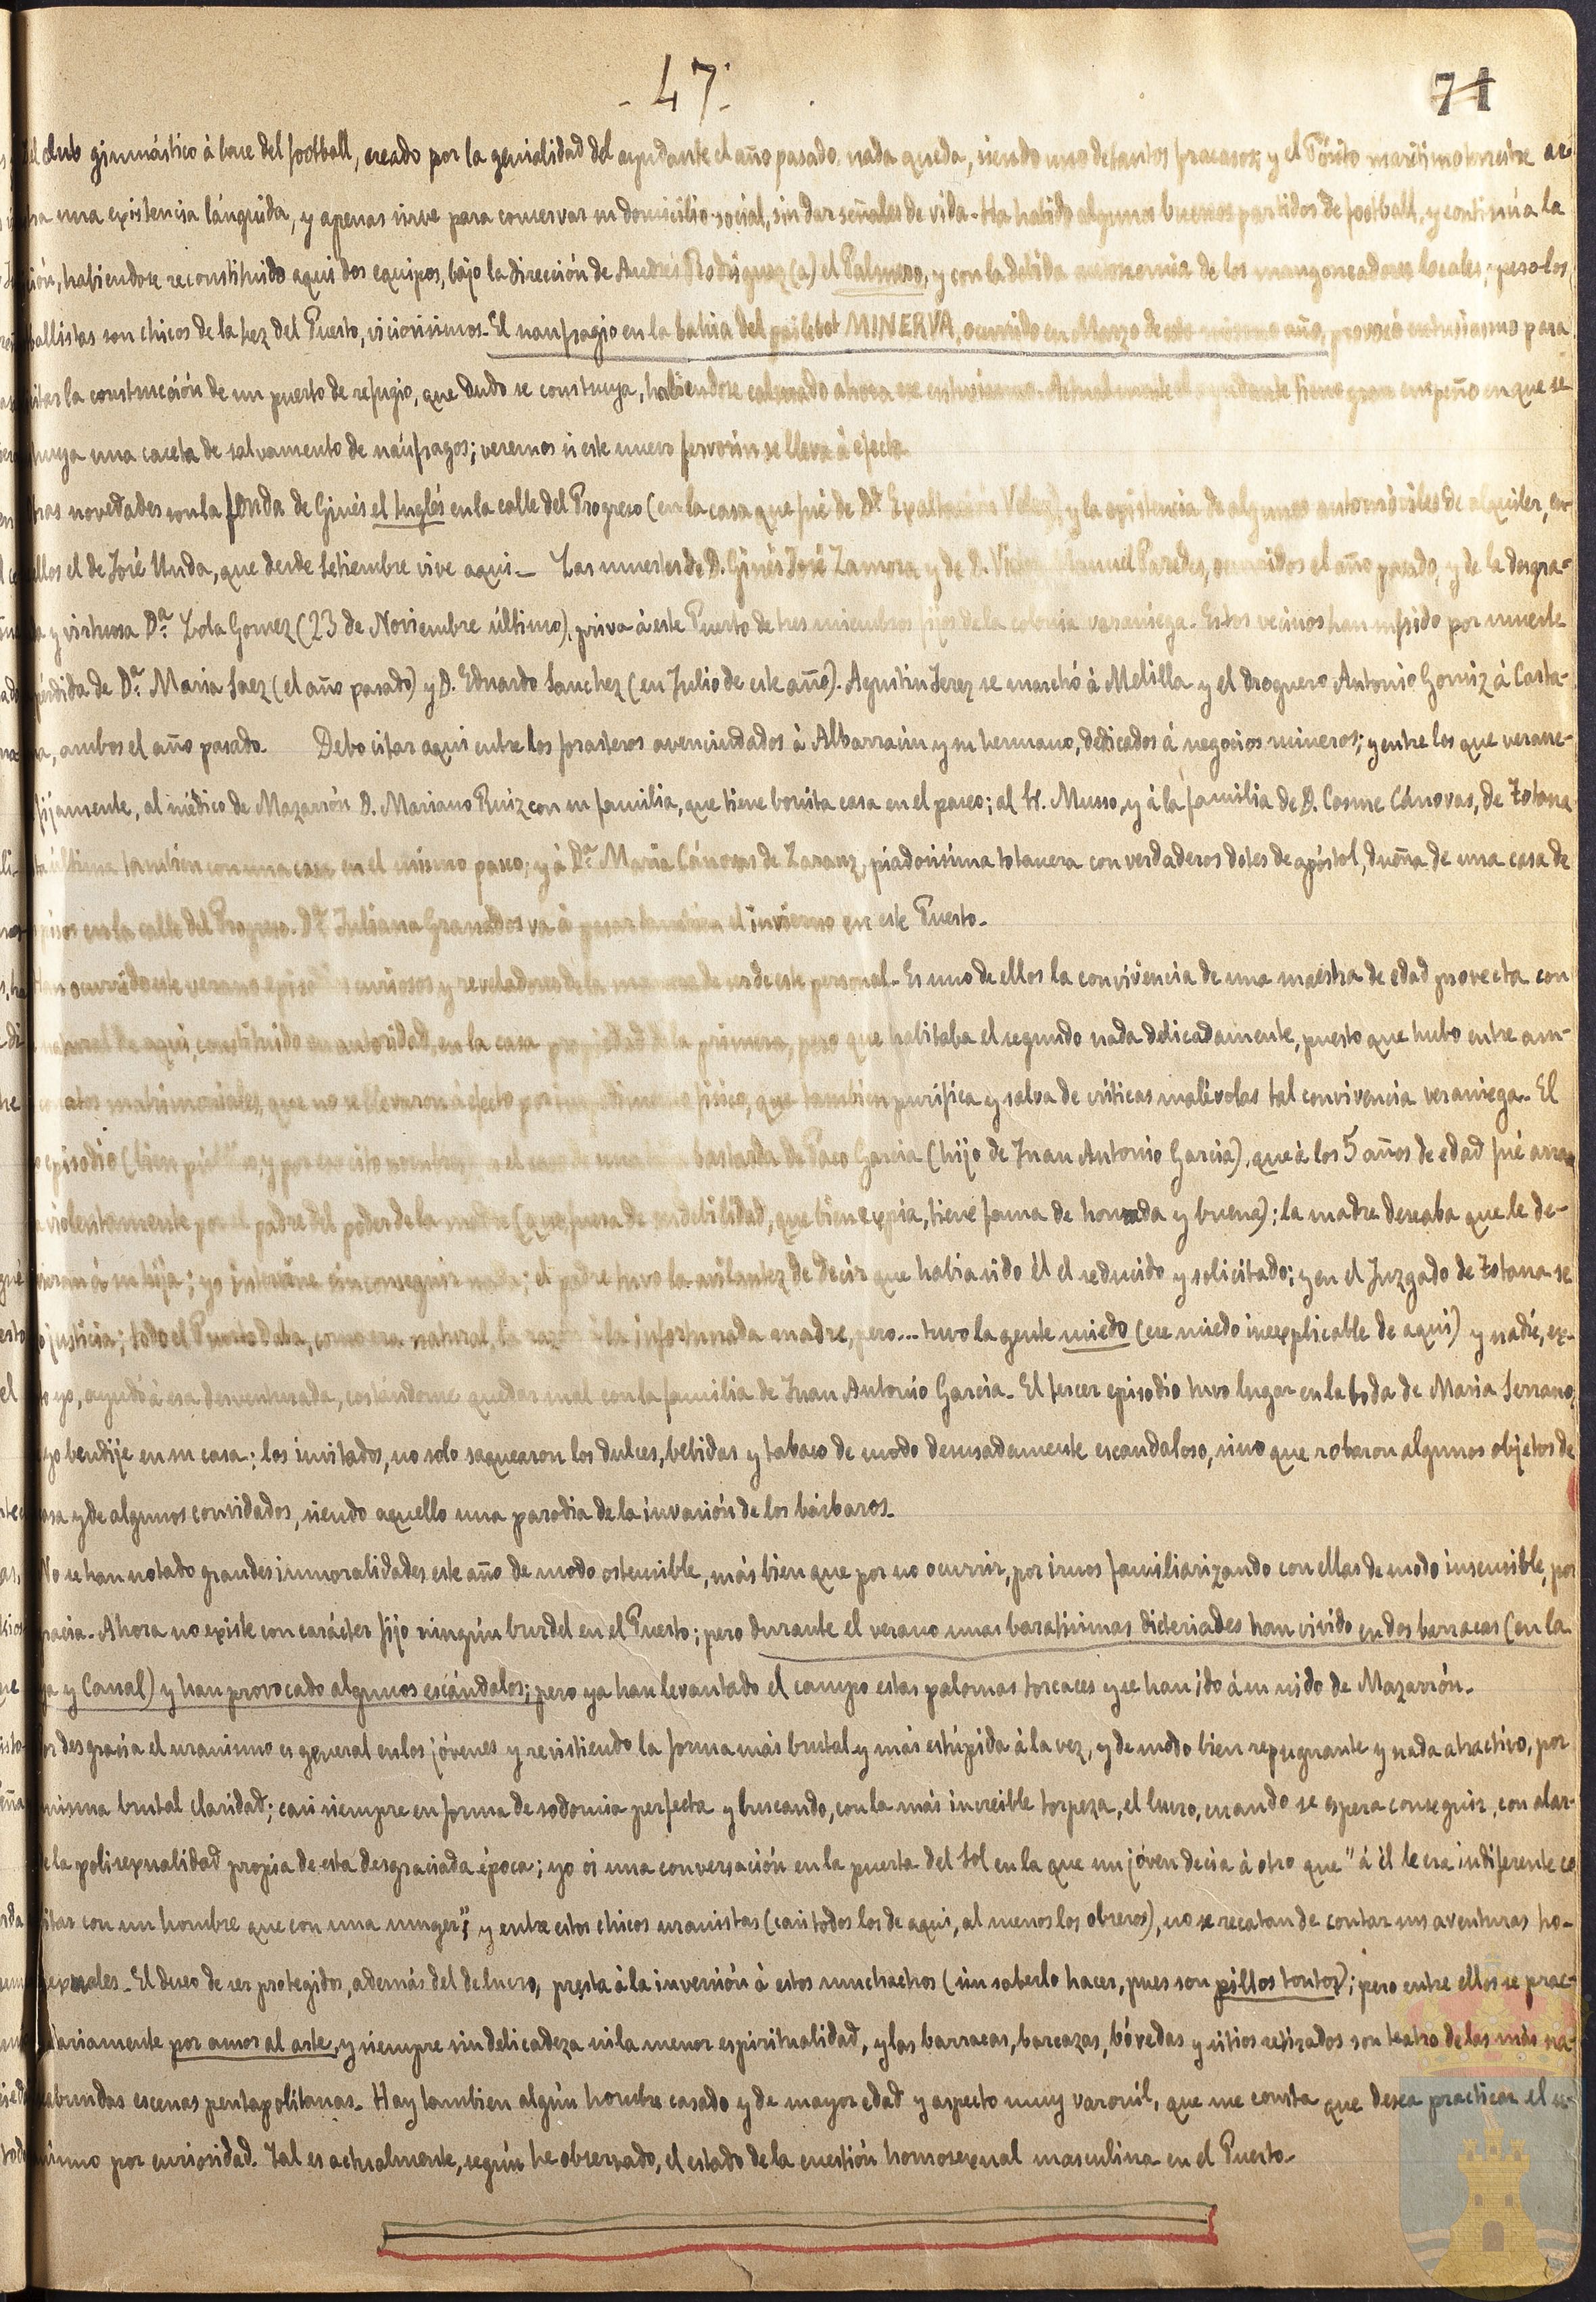 - 47 -
71
del club gimnástico á base del football, creado por la genialidad del ayudante el año pasado, nada queda, siendo uno de tantos fracasos; y el Pósito marítimo terrestre
una existencia lánguida, y apenas sirve para conservar su domicilio social, sin dar señales de vida. Ha habido algunos buenos partidos de football, y continúa la
habiendose reconstituido aqui dos equipos, bajo la dirección de Andrés Rodriguez (a) el Palmero, y con la debida autonomia de los mangoneadores locales; pero los
ballistas son chicos de la hez del Puerto, viciosisimos. El naufragio en la bahia del pailebot MINERVA, ocurrido en Marzo de este mismo año, provocó entusiasmo para
la construcción de un puerto de refugio, que dudo se construya, habiendose calmado ahora ese entusiasmo. Actualmente el ayudante tiene gran empeño en que se
truya una caseta de salvamento de naúfragos; veremos si este nuevo fervorin se lleva á efecto.
tras novedades son la fonda de Ginés el Inglés en la calle del Progreso (en la casa que fué de Dª Exaltación Velez), y la existencia de algunos automóviles de alquiler, en-
ellos el de José Unda, que desde Setiembre vive aqui. — Las muertes de D. Ginés José Zamora y de D. Manuel Paredes, ocurridos el año pasado, y de la desgra-
a y virtuosa Dª Lola Gomez (23 de Noviembre último), priva á este Puerto de tres miembros fijos de la colonia veraniega. Estos vecinos han sufrido por muerte
pérdida de Dª Maria Saez (el año pasado) y D. Eduardo Sanchez (en Julio de este año). Agustin Jerez se marchó á Melilla y el droguero Antonio Gomiz á Carta-
a, ambos el año pasado. Debo citar aqui entre los forasteros avencindados á Albarracin y su hermano, dedicados á negocios mineros; y entre los que verane-
fijamente, al médico de Mazarrón D. Mariano Ruiz con su familia, que tiene bonita casa en el paseo; al Sr. Musso, y á la familia de D. Cosme Cánovas, de Totana
ta última tambien con una casa en el mismo paseo; y á Dª Maria Cánovas de Zaranz, piadosisima totanera con verdaderos dotes de apóstol, dueña de una casa de
pisos en la calle del Progreso. Dª Juliana Granados va á pasar tambien el invierno en este Puerto.
Han ocurrido este verano episodios curiosos y reveladores de la manera de ser de este personal. Es uno de ellos la convivencia de una maestra de edad provecta con
natural de aqui, constituido en autoridad, en la casa propiedad de la primera, pero que habitaba el segundo nada delicadamente, puesto que hubo entre am-
conatos matrimoniales, que no se llevaron á efecto por impedimento fisico, que tambien purifica y salva de criticas malévolas tal convivencia veraniega. El
episodio (bien público, y por eso cito nombres) es el caso de una bastarda de Paco Garcia (hijo de Juan Antonio Garcia), que á los 5 años de edad fué arran
violentamente por el padre del poder de la madre (que, fuera de su debilidad, que bien expia, tiene fama de honrada y buena); la madre deseaba que le de-
vieran á su hija; yo intervine sin conseguir nada; el padre tuvo la avilantez de decir que habia sido él el seducido y solicitado; y en el Juzgado de Totana se
justicia; todo el Puerto daba, como era natural, la razón á la infortunada madre, pero... tuvo la gente miedo (ese miedo inexplicable de aqui) y nadie, ex-
yo, ayudó á esa desventurada, costándome quedar mal con la familia de Juan Antonio Garcia. El tercer episodio tuvo lugar en la boda de Maria Serrano,
yo bendije en su casa: los invitados, no solo saquearon los dulces, bebidas y tabaco de modo desusadamente escandaloso, sino que robaron algunos objetos de
casa y de algunos convidados, siendo aquello una parodia de la invasión de los bárbaros.
No se han notado grandes inmoralidades este año de modo ostensible, más bien que por no ocurrir, por irnos familiarizando con ellas de modo insensible, por
gracia. Ahora no existe con carácter fijo ningún burdel en el Puerto; pero durante el verano unas baratisimas dicteriades han vivido en dos barracas (en la
ya y Canal) y han provocado algunos escándalos; pero ya han levantado el campo estas palomas torcaces y se han ido á su nido de Mazarrón.
or desgracia el uranismo es general en los jóvenes y revistiendo la forma más brutal y más estúpida á la vez, y de modo bien repugnante y nada atractivo, por
misma brutal claridad; casi siempre en forma de sodomia perfecta y buscando, con la más increible torpeza, el lucro, cuando se espera conseguir, con alar-
de la polisexualidad propia de esta desgraciada época; yo oi una conversación en la puerta del Sol en la que un jóven decia á otro que "á él le era indiferente co
itar con un hombre que con una muger"; y entre estos chicos uranistas (casi todos los de aqui, al menos los obreros), no se recatan de contar sus aventuras ho-
sexuales. El deseo de ser protegidos, además del de lucro, presta á la inversión á estos muchachos (sin saberlo hacer, pues son pillos tontos); pero entre ellos se prac-
diariamente por amor al arte, y siempre sin delicadeza ni la menor espiritualidad, y las barracas, barcazas, bóvedas y sitios retirados son teatro de las más na-
abundas escenas pentapolitanas. Hay tambien algún hombre casado y de mayor edad y aspecto muy varonil, que me consta que desea practicar el u-
nismo por curiosidad. Tal es actualmente, según he observado, el estado de la cuestión homosexual masculina en el Puerto.